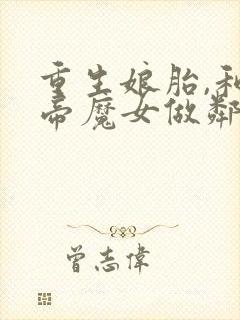 重生娘胎,和
帝魔女做鄰
曾志偉